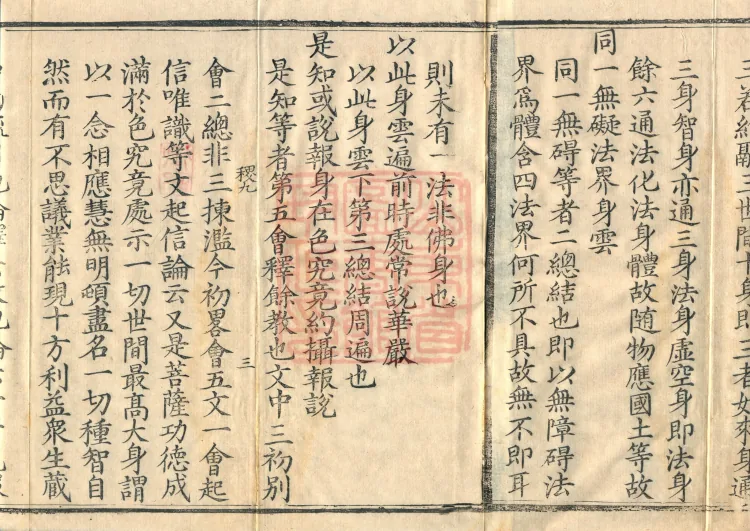 三身智身亦通三身法身虛空身即法身
餘六通法化法身體故随物應國土等故
同一無礙法界身雲
同一無碍等者二總結也即以無障碍法
界爲體含四法界何所不具故無不即耳
則未有一法非佛身也
以此身雲遍前時處常說華嚴
以此身雲下第三總結周遍也
是知或說報身在色究竟約攝報說
是知等者第五會釋餘教也文中三初別
稷九
三
會二總非三揀濫今初畧會五文一會起
信唯識等文起信論云又是菩薩功德成
滿於色究竟處示一切世間最高大身謂
以一念相應慧無明頓盡名一切種智自
然而有不思議業能現十方利益衆生藏